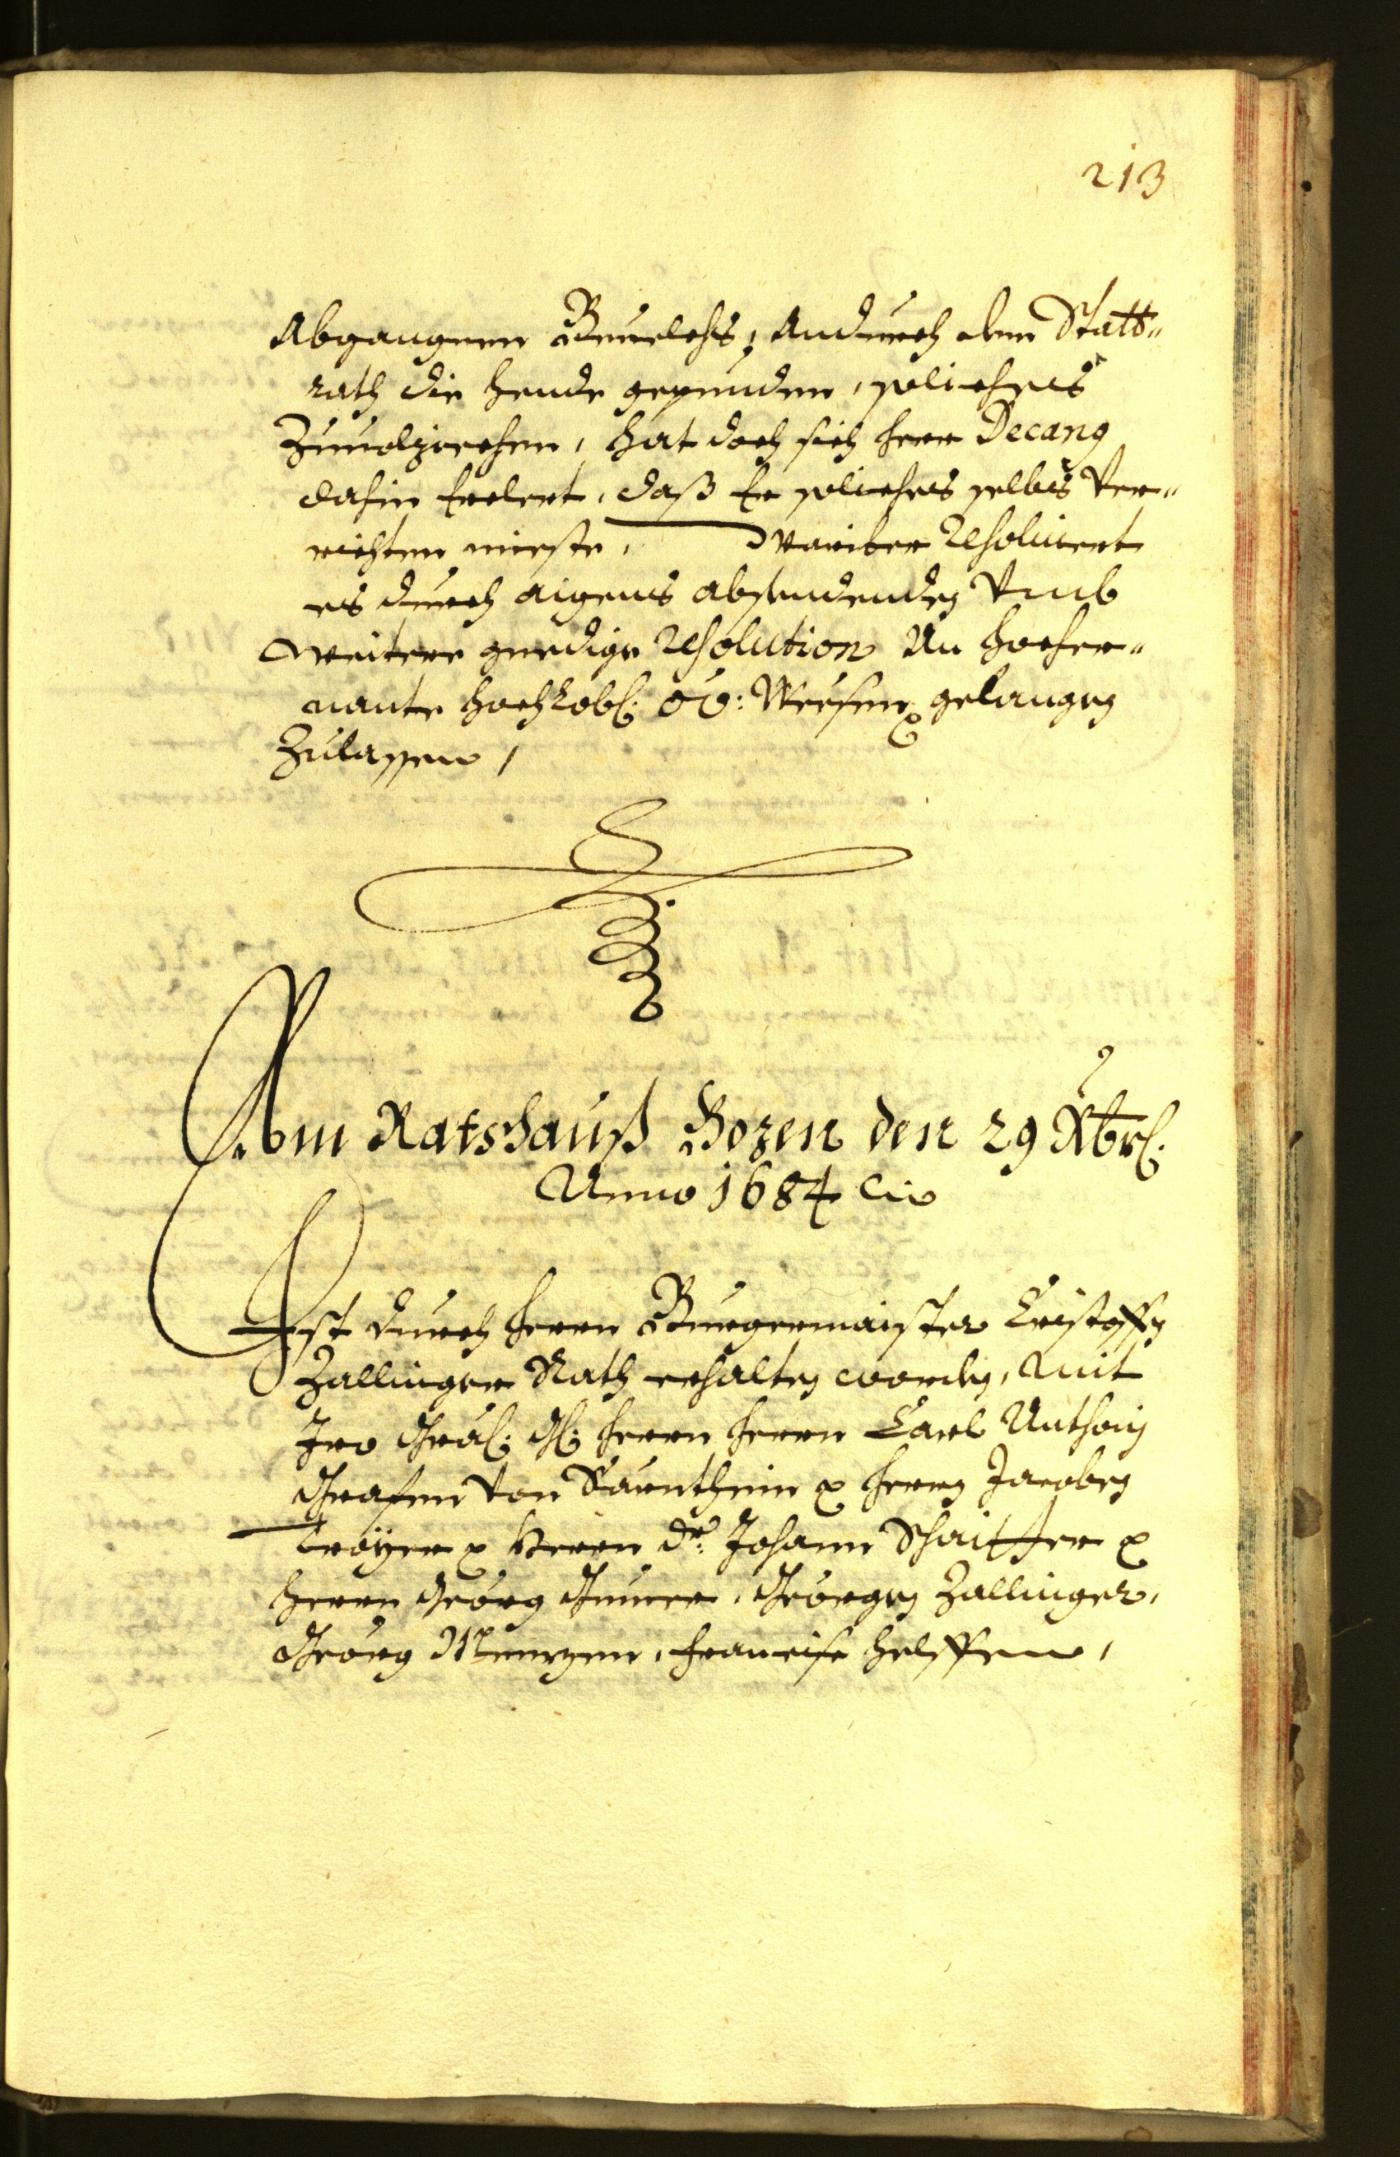 213
Abgangnen Beuelchs, Andurch dem Statt„
rath die hende gepunden, soliches
Zuuolziechen, hat doch sich herr Decang
dahin Erclert, daß Er soliches selbs Ver„
richten mieste, Darüber Resoluiert
es durch aigens absendenden Vmb
weitere gnedige Resolution An hocher„
nante hochlobl: OÖ: Weesen gelangen
Zulassen,
Am Ratshauß Bozen den 29 Xbr:
Anno 1684
Ist durch herrn Burgermaister Cristoffen
Zallinger Rath gehalten worden, mit
Iro Gräfl: Gl: herrn herrn Carl Anthoni
Grafen Von Saurnthein x herrn Jacoben
Troyer x herrn Dr: Johann Schaitter x
herrn Georg Gumer, Georgen Zallinger,
Georg Menzen, Francisc helffen,